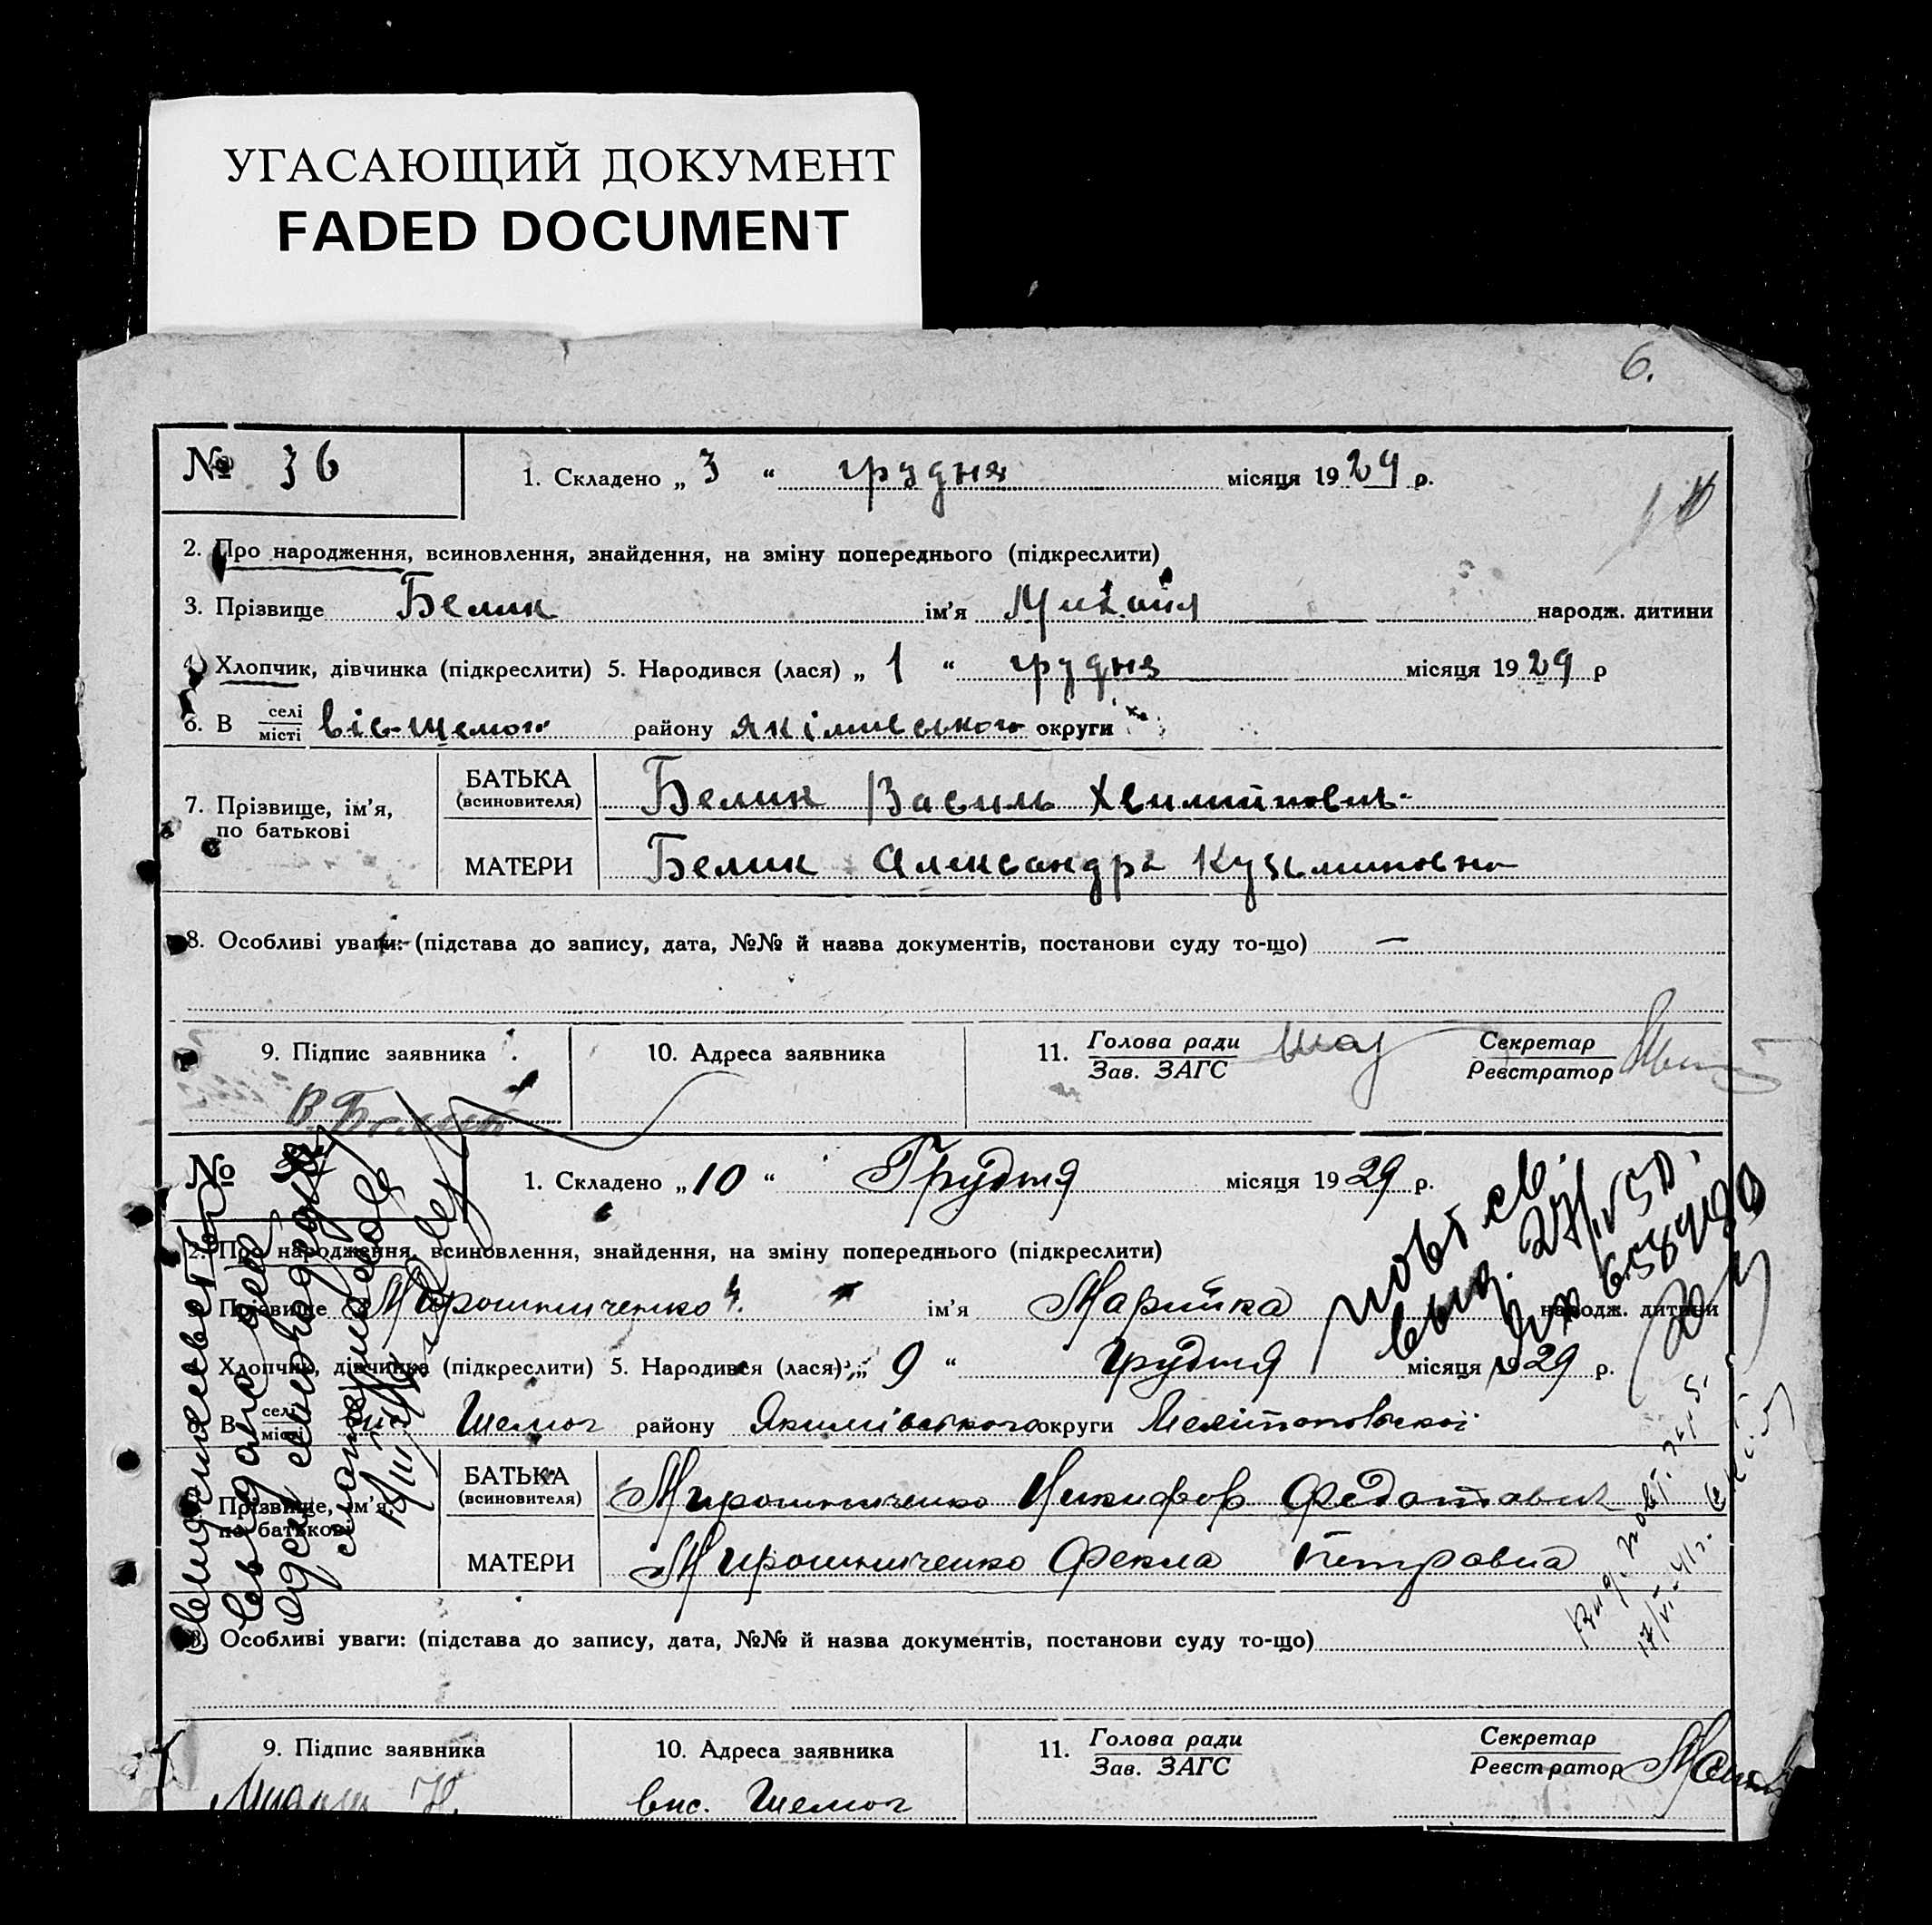 УГАСАЮЩИЙ ДОКУМЕНТ
FADED DOCUMENT
6.
№ 36
1. Складено „ 3 “ грудня місяця 1929 р.
2. Про народження, всиновлення, знайдення, на зміну попереднього (підкреслити)
3. Прізвище Белик ім’я Михайл народж. дитини
4. Хлопчик, дівчинка (підкреслити) 5. Народився (лася) „ 1 “ грудня місяця 1929 р
6. В селі місті віс-Шемог району Якімивського округи
7. Прізвище, ім’я, по батькові
БАТЬКА (всиновителя) Белик Василь
МАТЕРИ Белик Александра Кузьминовна
8. Особливі уваги: (підстава до запису, дата, №№ й назва документів, постанови суду то-що) —
9. Підпис заявника
10. Адреса заявника
11. Голова ради Зав. ЗАГС
Секретар Реєстратор
В. Белик
№
1. Складено „ 10 “ Грудня місяця 1929 р.
2. Про народження, всиновлення, знайдення, на зміну попереднього (підкреслити)
3. Прізвище Мирошниченко ім’я Марийка народж. дитини
Хлопчик, дівчинка (підкреслити) 5. Народився (лася) „ 9 “ Грудня місяця 1929 р.
В селі місті Шемог району Якимівського округи Мелітопольскої
Прізвище, ім’я, по батькові
БАТЬКА (всиновителя) Мирошниченко Никифор Федотович
МАТЕРИ Мирошниченко Фекла Петровна
8. Особливі уваги: (підстава до запису, дата, №№ й назва документів, постанови суду то-що)
9. Підпис заявника
10. Адреса заявника
11. Голова ради Зав. ЗАГС
Секретар Реєстратор
вис. Шемог
повт св.
выд. 27/IV 50.
Выд. повт.
17/VI-41г.